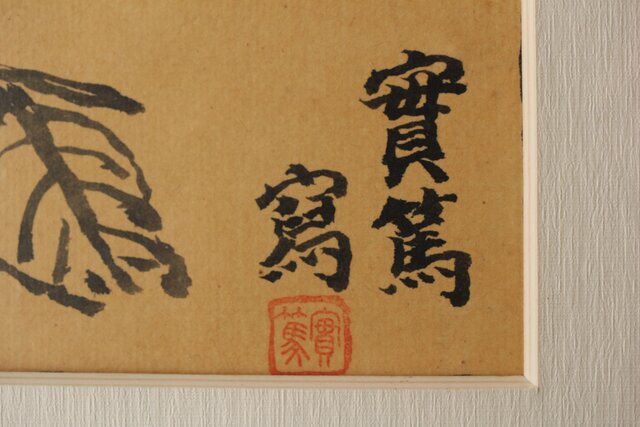 實篤
寫
實篤